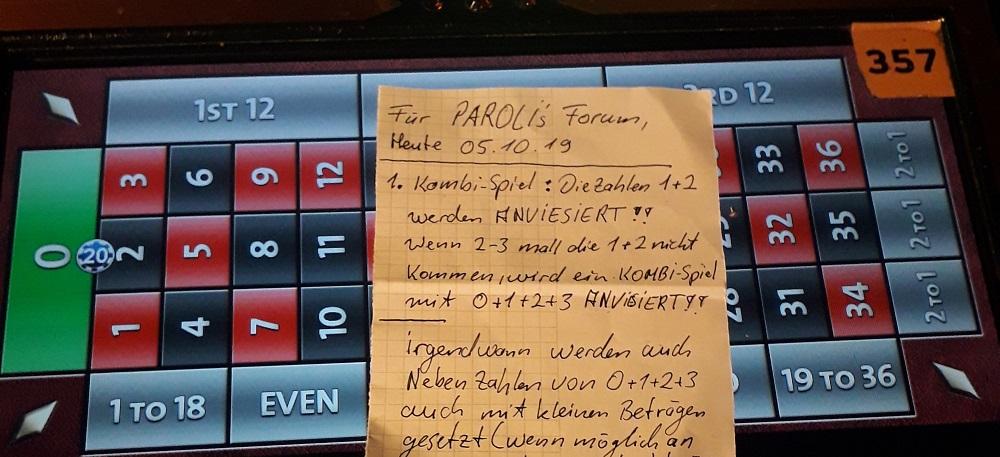 357
1ST 12
3RD 12
3 6 9 12
33 36 2 to 1
0
20
2 5 8 11
32 35 2 to 1
1 4 7 10
28 31 34 2 to 1
1 TO 18
EVEN
19 TO 36
Für PAROLI's Forum,
Heute 05.10.19
1. Kombi-Spiel : Die Zahlen 1+2
werden ANVIESIERT!!
wenn 2-3 mall die 1+2 nicht
kommen, wird ein KOMBI-Spiel
mit 0+1+2+3 ANVISIERT!!
irgendwann werden auch
Neben Zahlen von 0+1+2+3
auch mit kleinen Beträgen
gesetzt (wenn möglich an